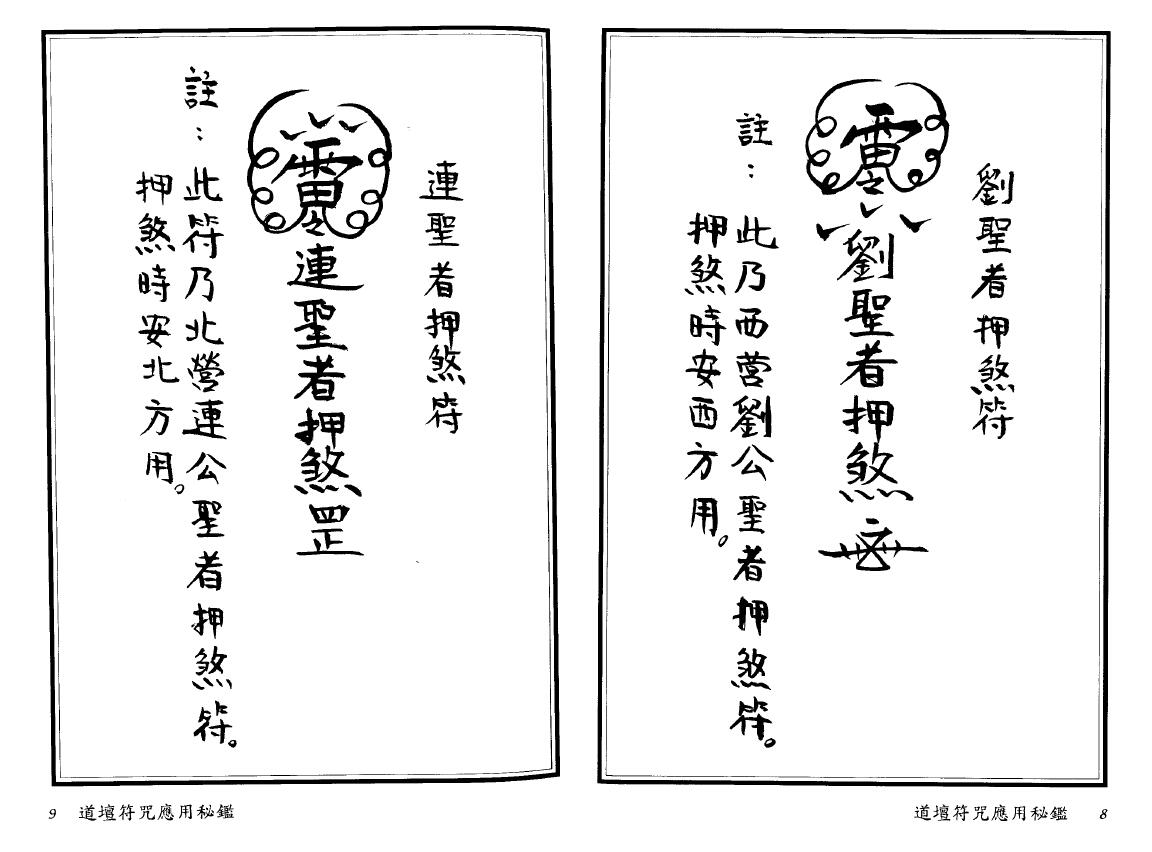 劉聖者押煞符
劉聖者押煞
註：此乃西营劉公聖者押煞符。
押煞時安西方用。
道壇符咒應用秘鑑 8
連聖者押煞符
連聖者押煞罡
註：此符乃北營連公聖者押煞符。
押煞時安北方用。
9 道壇符咒應用秘鑑